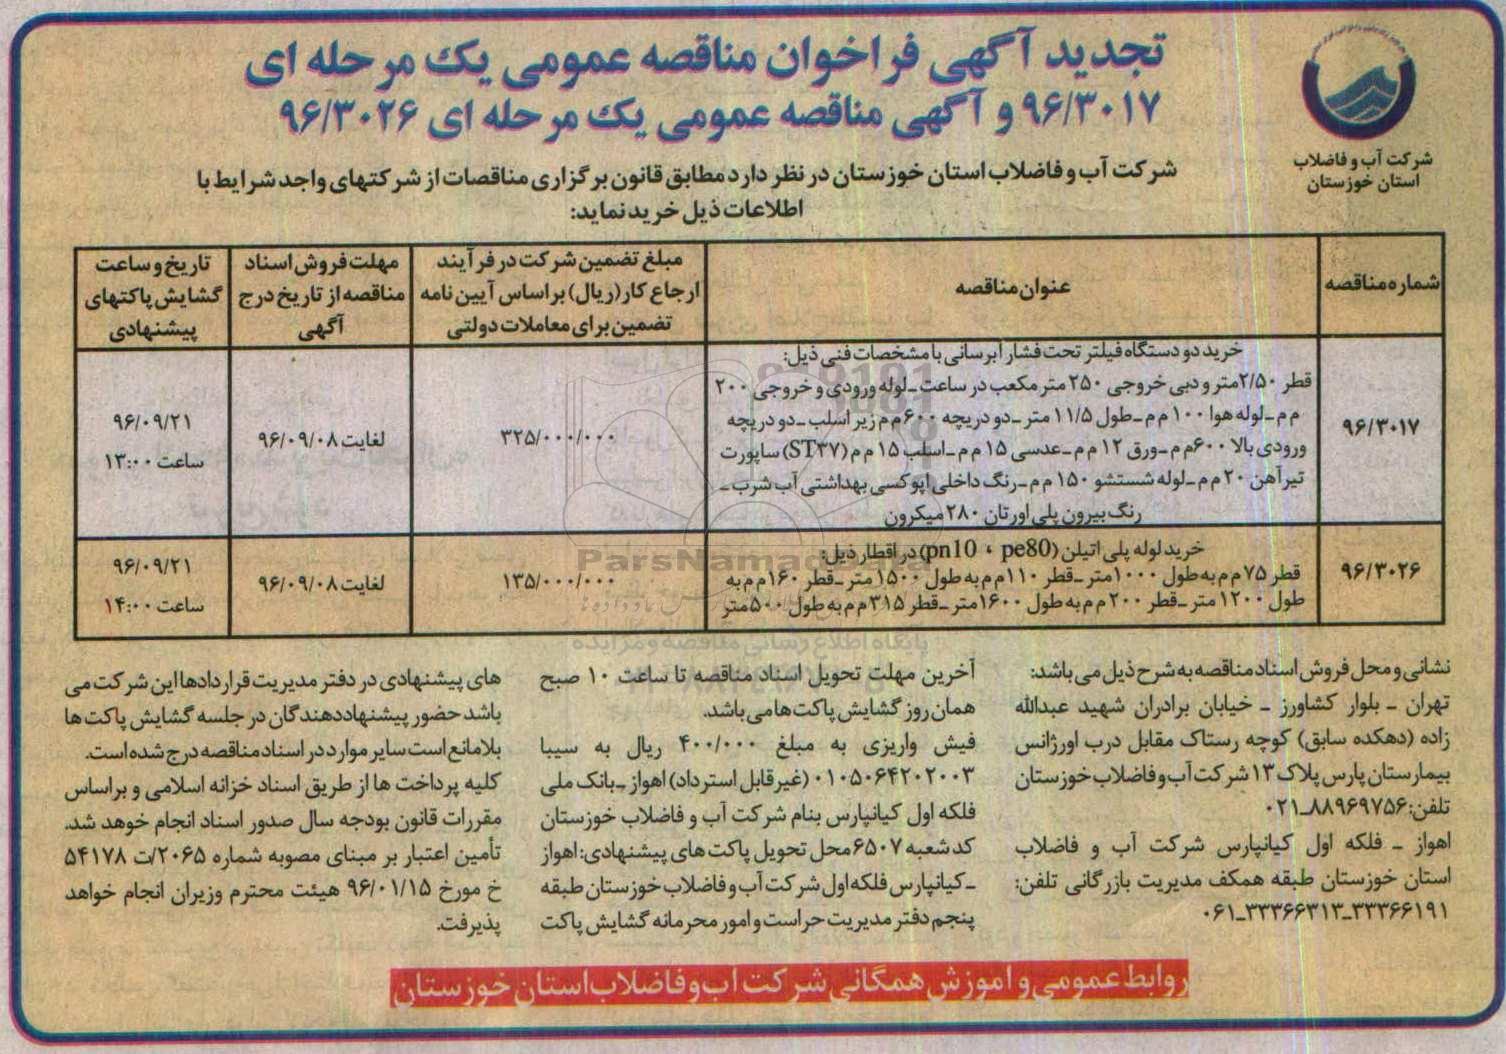 تجدید آگهی فراخوان مناقصه عمومی یک مرحله ای
۹۶/۳۰۱۷ و آگهی مناقصه عمومی یک مرحله ای ۹۶/۳۰۲۶
شرکت آب و فاضلاب
استان خوزستان
شرکت آب و فاضلاب استان خوزستان در نظر دارد مطابق قانون برگزاری مناقصات از شرکتهای واجد شرایط با
اطلاعات ذیل خرید نماید:
شماره مناقصه
عنوان مناقصه
مبلغ تضمین شرکت در فرآیند
ارجاع کار (ریال) براساس آیین نامه
تضمین برای معاملات دولتی
مهلت فروش اسناد
مناقصه از تاریخ درج
آگهی
تاریخ و ساعت
گشایش پاکتهای
پیشنهادی
۹۶/۳۰۱۷
خرید دو دستگاه فیلتر تحت فشار آبرسانی با مشخصات فنی ذیل:
قطر ۲/۵۰متر و دبی خروجی ۲۵۰ متر مکعب در ساعت ـ لوله ورودی و خروجی ۲۰۰
م م ـ لوله هوا ۱۰۰ م م ـ طول ۱۱/۵ متر ـ دو دریچه ۶۰۰م م زیر اسلب ـ دو دریچه
ورودی بالا ۶۰۰م م ـ ورق ۱۲ م م ـ عدسی ۱۵ م م ـ اسلب ۱۵ م م (ST۳۷) ساپورت
تیرآهن ۲۰ م م ـ لوله شستشو ۱۵۰ م م ـ رنگ داخلی اپوکسی بهداشتی آب شرب ـ
رنگ بیرون پلی اورتان ۲۸۰ میکرون
۳۲۵/۰۰۰/۰۰۰
لغایت ۹۶/۰۹/۰۸
۹۶/۰۹/۲۱
ساعت ۱۳:۰۰
۹۶/۳۰۲۶
خرید لوله پلی اتیلن (pn10 ، pe80) در اقطار ذیل:
قطر ۷۵ م م به طول ۱۰۰۰متر ـ قطر ۱۱۰م م به طول ۱۵۰۰ متر ـ قطر ۱۶۰م م به
طول ۱۲۰۰ متر ـ قطر ۲۰۰ م م به طول ۱۶۰۰متر ـ قطر ۳۱۵م م به طول ۵۰۰متر
۱۳۵/۰۰۰/۰۰۰
لغایت ۹۶/۰۹/۰۸
۹۶/۰۹/۲۱
ساعت ۱۴:۰۰
ParsNamadData
پایگاه اطلاع رسانی مناقصه و مزایده
نشانی و محل فروش اسناد مناقصه به شرح ذیل می باشد:
تهران ـ بلوار کشاورز ـ خیابان برادران شهید عبدالله
زاده (دهکده سابق) کوچه رستاک مقابل درب اورژانس
بیمارستان پارس پلاک ۱۳ شرکت آب و فاضلاب خوزستان
تلفن: ۸۸۹۶۹۷۵۶ـ۰۲۱
اهواز ـ فلکه اول کیانپارس شرکت آب و فاضلاب
استان خوزستان طبقه همکف مدیریت بازرگانی تلفن:
۳۳۳۶۶۱۹۱ـ۳۳۳۶۶۳۱۳ـ۰۶۱
آخرین مهلت تحویل اسناد مناقصه تا ساعت ۱۰ صبح
همان روز گشایش پاکت ها می باشد.
فیش واریزی به مبلغ ۴۰۰/۰۰۰ ریال به سیبا
۰۱۰۵۰۶۴۲۰۲۰۰۳ (غیرقابل استرداد) اهواز ـ بانک ملی
فلکه اول کیانپارس بنام شرکت آب و فاضلاب خوزستان
کد شعبه ۶۵۰۷ محل تحویل پاکت های پیشنهادی: اهواز
ـ کیانپارس فلکه اول شرکت آب و فاضلاب خوزستان طبقه
پنجم دفتر مدیریت حراست و امور محرمانه گشایش پاکت
های پیشنهادی در دفتر مدیریت قراردادها این شرکت می
باشد حضور پیشنهاددهندگان در جلسه گشایش پاکت ها
بلامانع است سایر موارد در اسناد مناقصه درج شده است.
کلیه پرداخت ها از طریق اسناد خزانه اسلامی و براساس
مقررات قانون بودجه سال صدور اسناد انجام خوهد شد.
تأمین اعتبار بر مبنای مصوبه شماره ۲۰۶۵/ت ۵۴۱۷۸
خ مورخ ۹۶/۰۱/۱۵ هیئت محترم وزیران انجام خواهد
پذیرفت.
روابط عمومی و آموزش همگانی شرکت آب و فاضلاب استان خوزستان